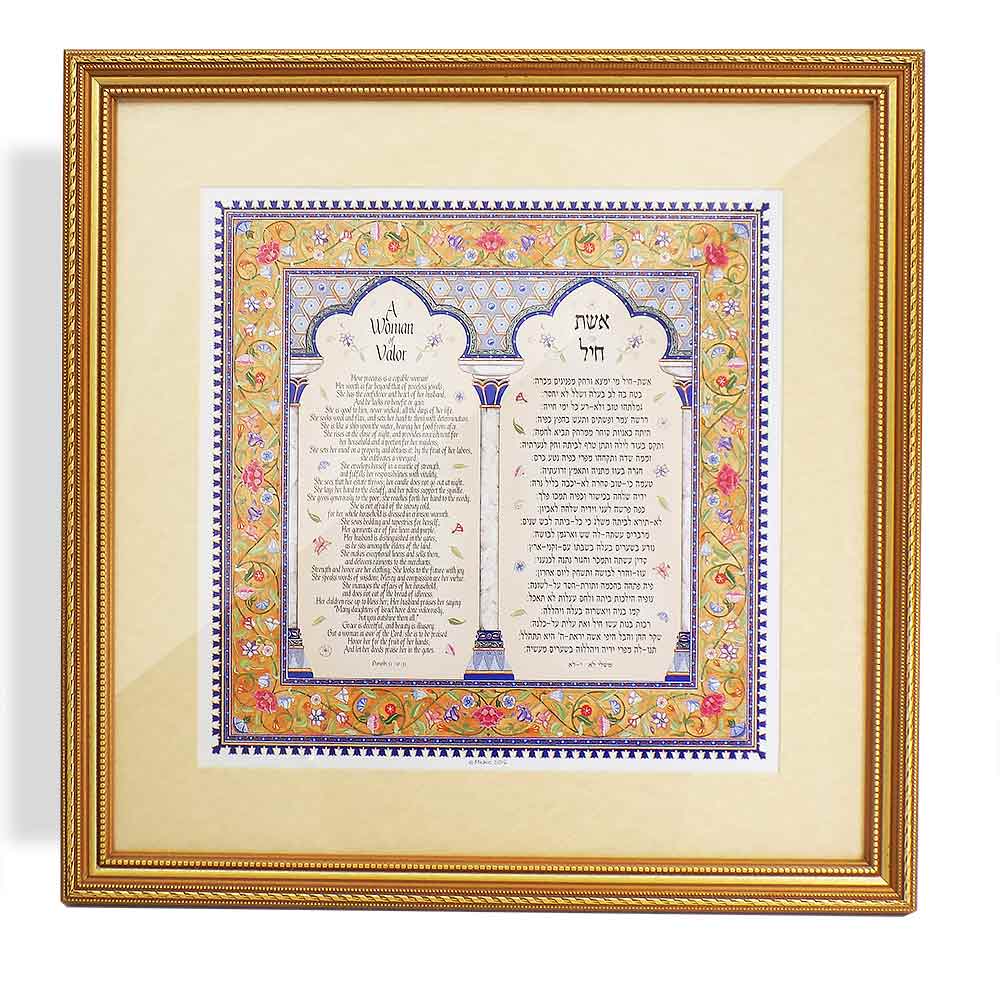 A
Woman
of
Valor
How precious is a capable woman!
Her worth is far beyond that of priceless jewels.
She has the confidence and heart of her husband,
And he lacks no benefit or gain.
She is good to him, never wicked, all the days of her life.
She seeks wool and flax, and sets her hand to them with determination.
She is like a ship upon the water, bearing her food from afar.
She rises at the close of night, and provides nourishment for
her household and a portion for her maidens.
She sets her mind on a property and obtains it; by the fruit of her labors,
she cultivates a vineyard.
She envelops herself in a mantle of strength
and fulfills her responsibilities with vitality.
She sees that her estate thrives; her candle does not go out at night.
She lays her hand to the distaff, and her palms support the spindle.
She gives generously to the poor; She reaches forth her hand to the needy.
She is not afraid of the snowy cold,
for her whole household is dressed in crimson warmth.
She sews bedding and tapestries for herself;
Her garments are of fine linen and purple.
Her husband is distinguished in the gates,
as he sits among the elders of the land.
She makes exceptional linens and sells them,
and delivers raiments to the merchants.
Strength and honor are her clothing; She looks to the future with joy.
She speaks words of wisdom; Mercy and compassion are her virtue.
She manages the affairs of her household,
and does not eat of the bread of idleness.
Her children rise up to bless her; Her husband praises her saying
"Many daughters of Israel have done valorously,
but you outshine them all."
Grace is deceitful, and beauty is illusory
But a woman in awe of the Lord, she is to be praised
Honor her for the fruit of her hands,
And let her deeds praise her in the gates.
Proverbs 31: 10-31
אשת
חיל
אשת-חיל מי ימצא ורחק מפנינים מכרה:
בטח בה לב בעלה ושלל לא יחסר:
גמלתהו טוב ולא-רע כל ימי חייה:
דרשה צמר ופשתים ותעש בחפץ כפיה:
היתה כאניות סוחר ממרחק תביא לחמה:
ותקם בעוד לילה ותתן טרף לביתה וחק לנערתיה:
זממה שדה ותקחהו מפרי כפיה נטע כרם:
חגרה בעוז מתניה ותאמץ זרועתיה:
טעמה כי-טוב סחרה לא-יכבה בליל נרה:
ידיה שלחה בכישור וכפיה תמכו פלך:
כפה פרשה לעני וידיה שלחה לאביון:
לא-תירא לביתה משלג כי כל-ביתה לבש שנים:
מרבדים עשתה-לה שש וארגמן לבושה:
נודע בשערים בעלה בשבתו עם-זקני-ארץ:
סדין עשתה ותמכר וחגור נתנה לכנעני:
עוז-והדר לבושה ותשחק ליום אחרון:
פיה פתחה בחכמה ותורת-חסד על-לשונה:
צופיה הילכות ביתה ולחם עצלות לא תאכל:
קמו בניה ויאשרוה בעלה ויהללה:
רבות בנות עשו חיל ואת עלית על-כלנה:
שקר החן והבל היפי אשה יראת-ה' היא תתהלל:
תנו-לה מפרי ידיה ויהללוה בשערים מעשיה:
משלי לא י-לא
2012